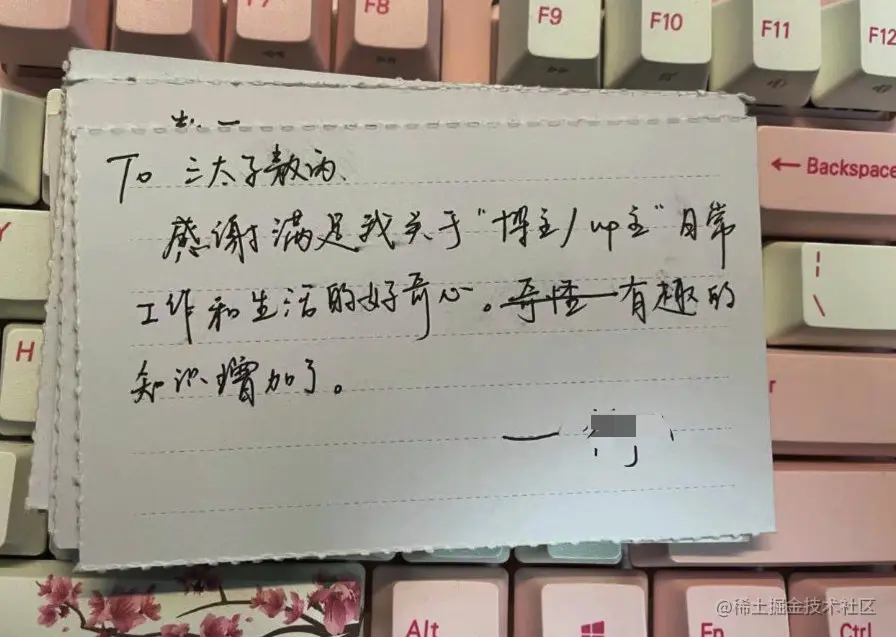 F7
F8
F9
F10
F11
F12
To 三太子敖丙、
感谢满足我关于“博主/up主”日常
工作和生活的好奇心。奇怪有趣的
知识增加了。
一
← Backspace
Y
H
Alt
Fn
Ctrl
@稀土掘金技术社区